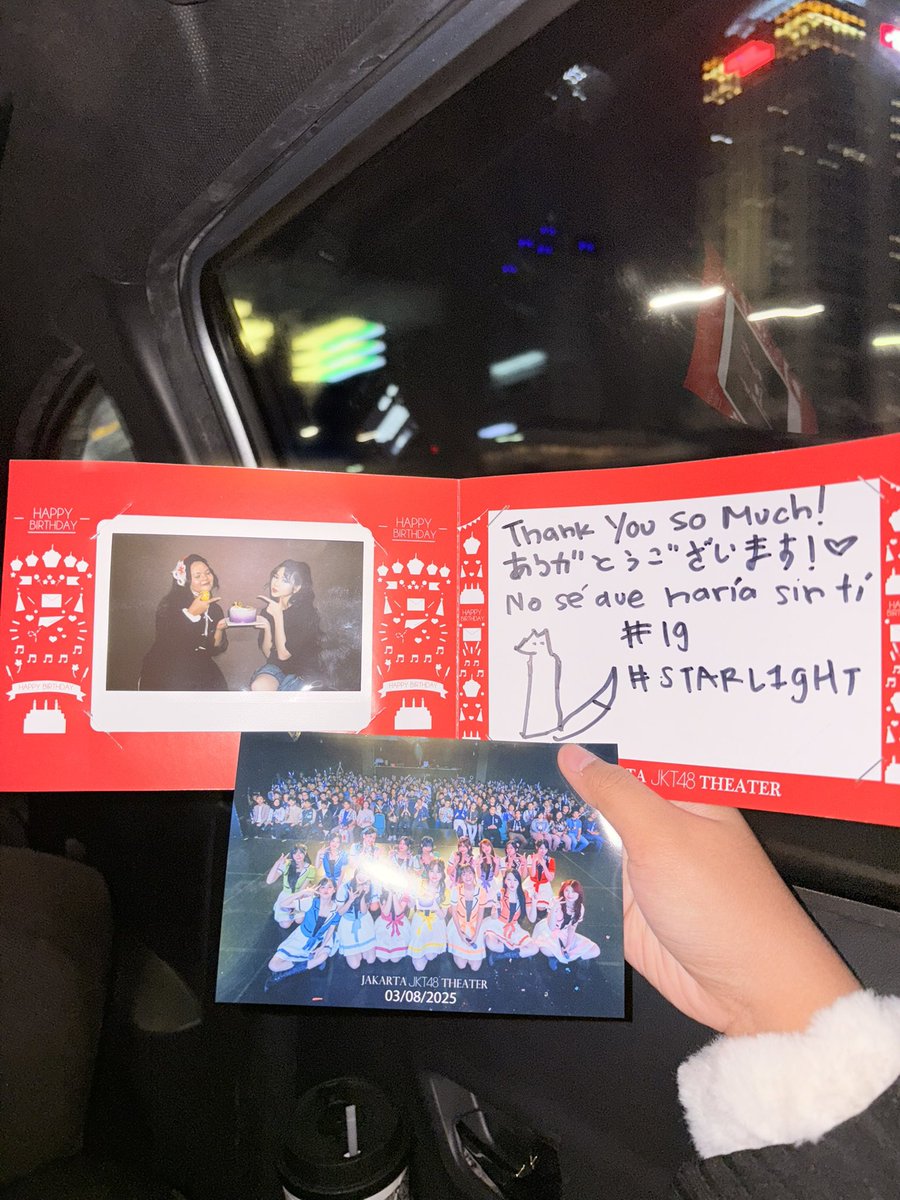 HAPPY
BIRTHDAY
HAPPY
BIRTHDAY
HAPPY BIRTHDAY
HAPPY BIRTHDAY
Thank You so Much!
ありがとうございます!♡
No sé que haría sin tí
#19
#STARL1gHT
HAPPY
BIRTHDAY
TA JKT48 THEATER
JAKARTA JKT48 THEATER
03/08/2025